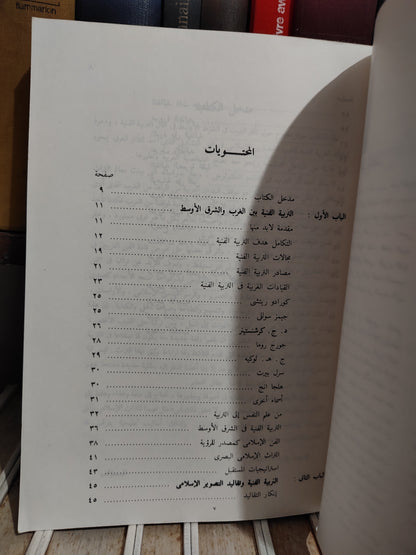 flammarion
vre ave
المحتويات
صفحة
مدخل الكتاب ٩
الباب الأول : التربية الفنية بين الغرب والشرق الأوسط ١١
مقدمة لابد منها ١١
التكامل هدف التربية الفنية ١٢
مجالات التربية الفنية ١٩
مصادر التربية الفنية ٢١
القيادات الغربية فى التربية الفنية ٢٣
كورادو ريتشى ٢٥
جيمز سوللى ٢٥
د . ج . كرشنستينر ٢٦
جورج روما ٢٨
ج . هـ . لوكيه ٢٩
سرل بيرت ٣٠
هلجا انج ٣٠
أسماء أخرى ٣١
من علم النفس إلى التربية ٣٢
التربية الفنية فى الشرق الأوسط ٣٦
الفن الإسلامى كمصدر للرؤية ٣٨
التراث الإسلامى البصرى ٤١
استراتيجيات المستقبل ٤٣
الباب الثانى : التربية الفنية وتقاليد التصوير الإسلامى ٤٥
إنكار التقاليد ٤٥
٧